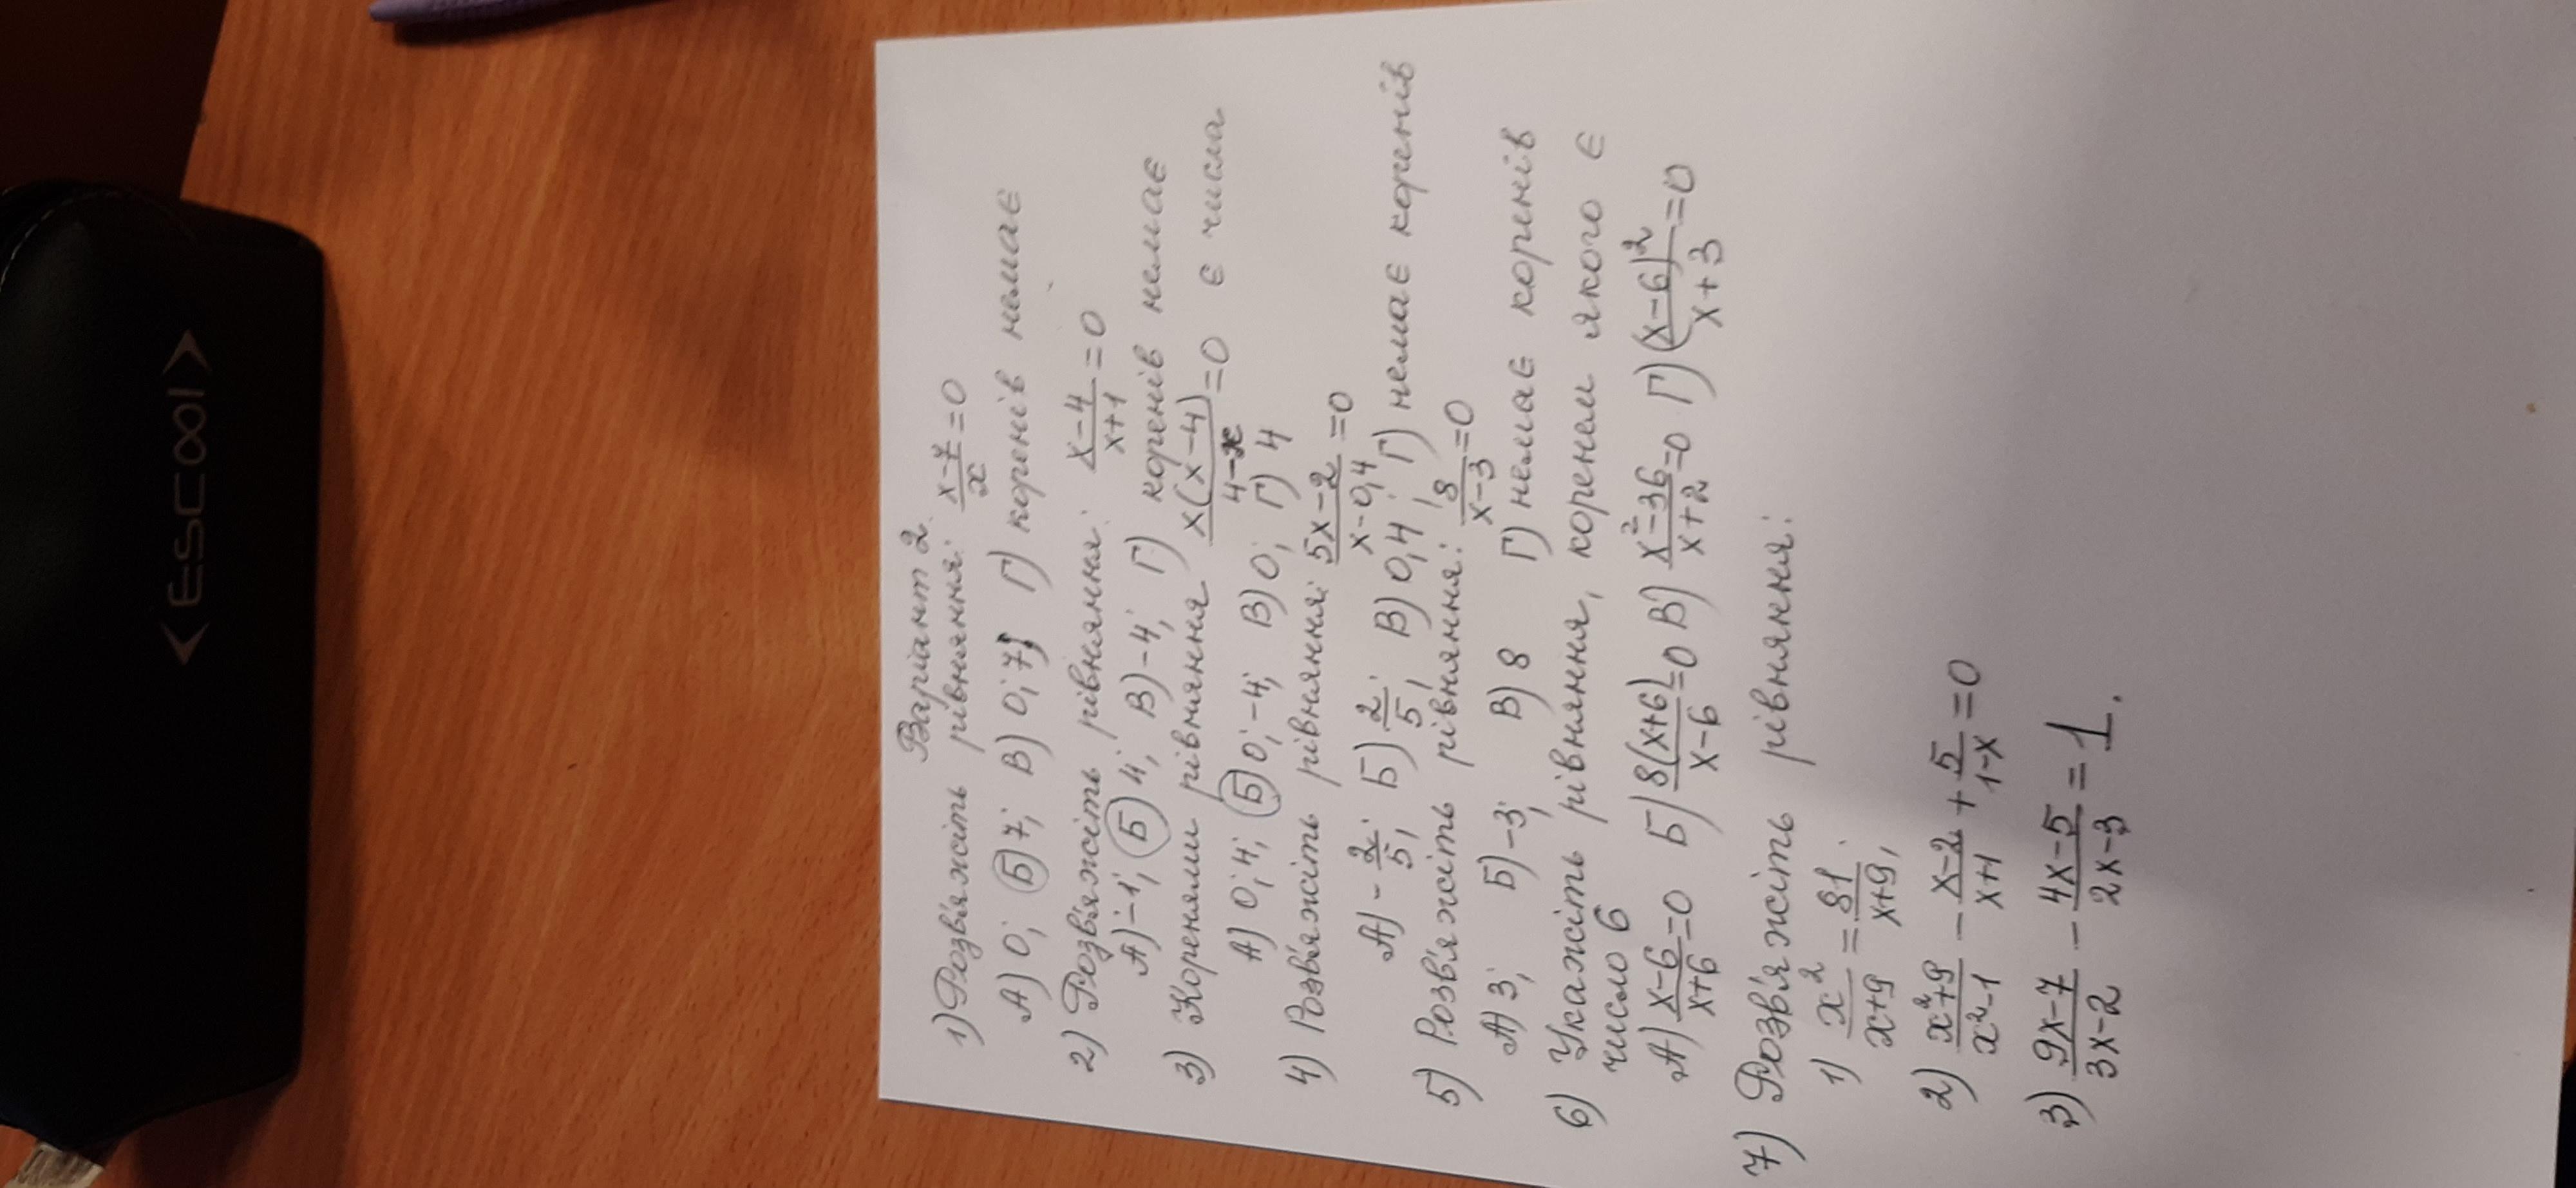 <ESCOOL>
Варіант 2.
1) Розв'яжіть рівняння: x-7/x=0
А) 0; Б) 7; В) 0; 7; Г) коренів немає
2) Розв'яжіть рівняння: x-4/x+1=0
А)-1; Б) 4; В)-4; Г) коренів немає
3) Коренями рівняння x(x-4)/4-x=0 є числа
А) 0; 4; Б) 0; -4; В) 0; Г) 4
4) Розв'яжіть рівняння: 5x-2/x-0,4=0
А) -2/5; Б) 2/5; В) 0,4; Г) немає коренів
5) Розв'яжіть рівняння: 8/x-3=0
А) 3; Б)-3; В) 8 Г) немає коренів
6) Укажіть рівняння, коренем якого є
число 6
А) x-6/x+6=0 Б) 8(x+6)/x-6=0 В) x²-36/x+2=0 Г) (x-6)²/x+3=0
7) Розв'яжіть рівняння:
1) x²/x+9=81/x+9;
2) x²+9/x²-1 - x-2/x+1 + 5/1-x=0
3) 9x-7/3x-2 - 4x-5/2x-3=1.